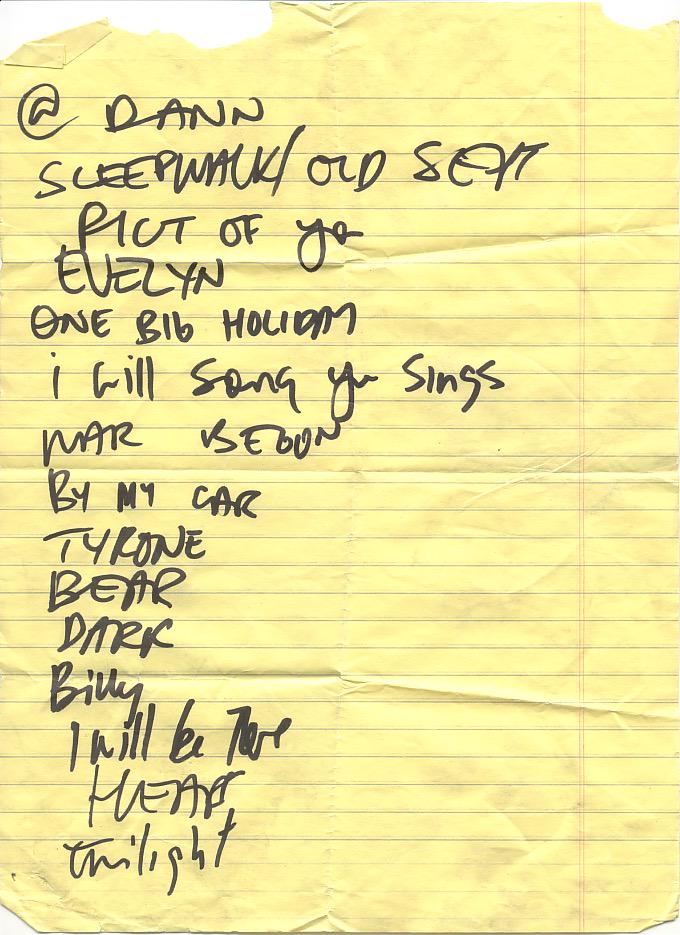 @ DANN
SLEEPWALK/ OLD SEPT
PICT OF you
EVELYN
ONE BIG HOLIDAY
i will song you sings
WAR BEGUN
BY MY CAR
TYRONE
BEAR
DARK
Billy
I will be There
HEART
twilight